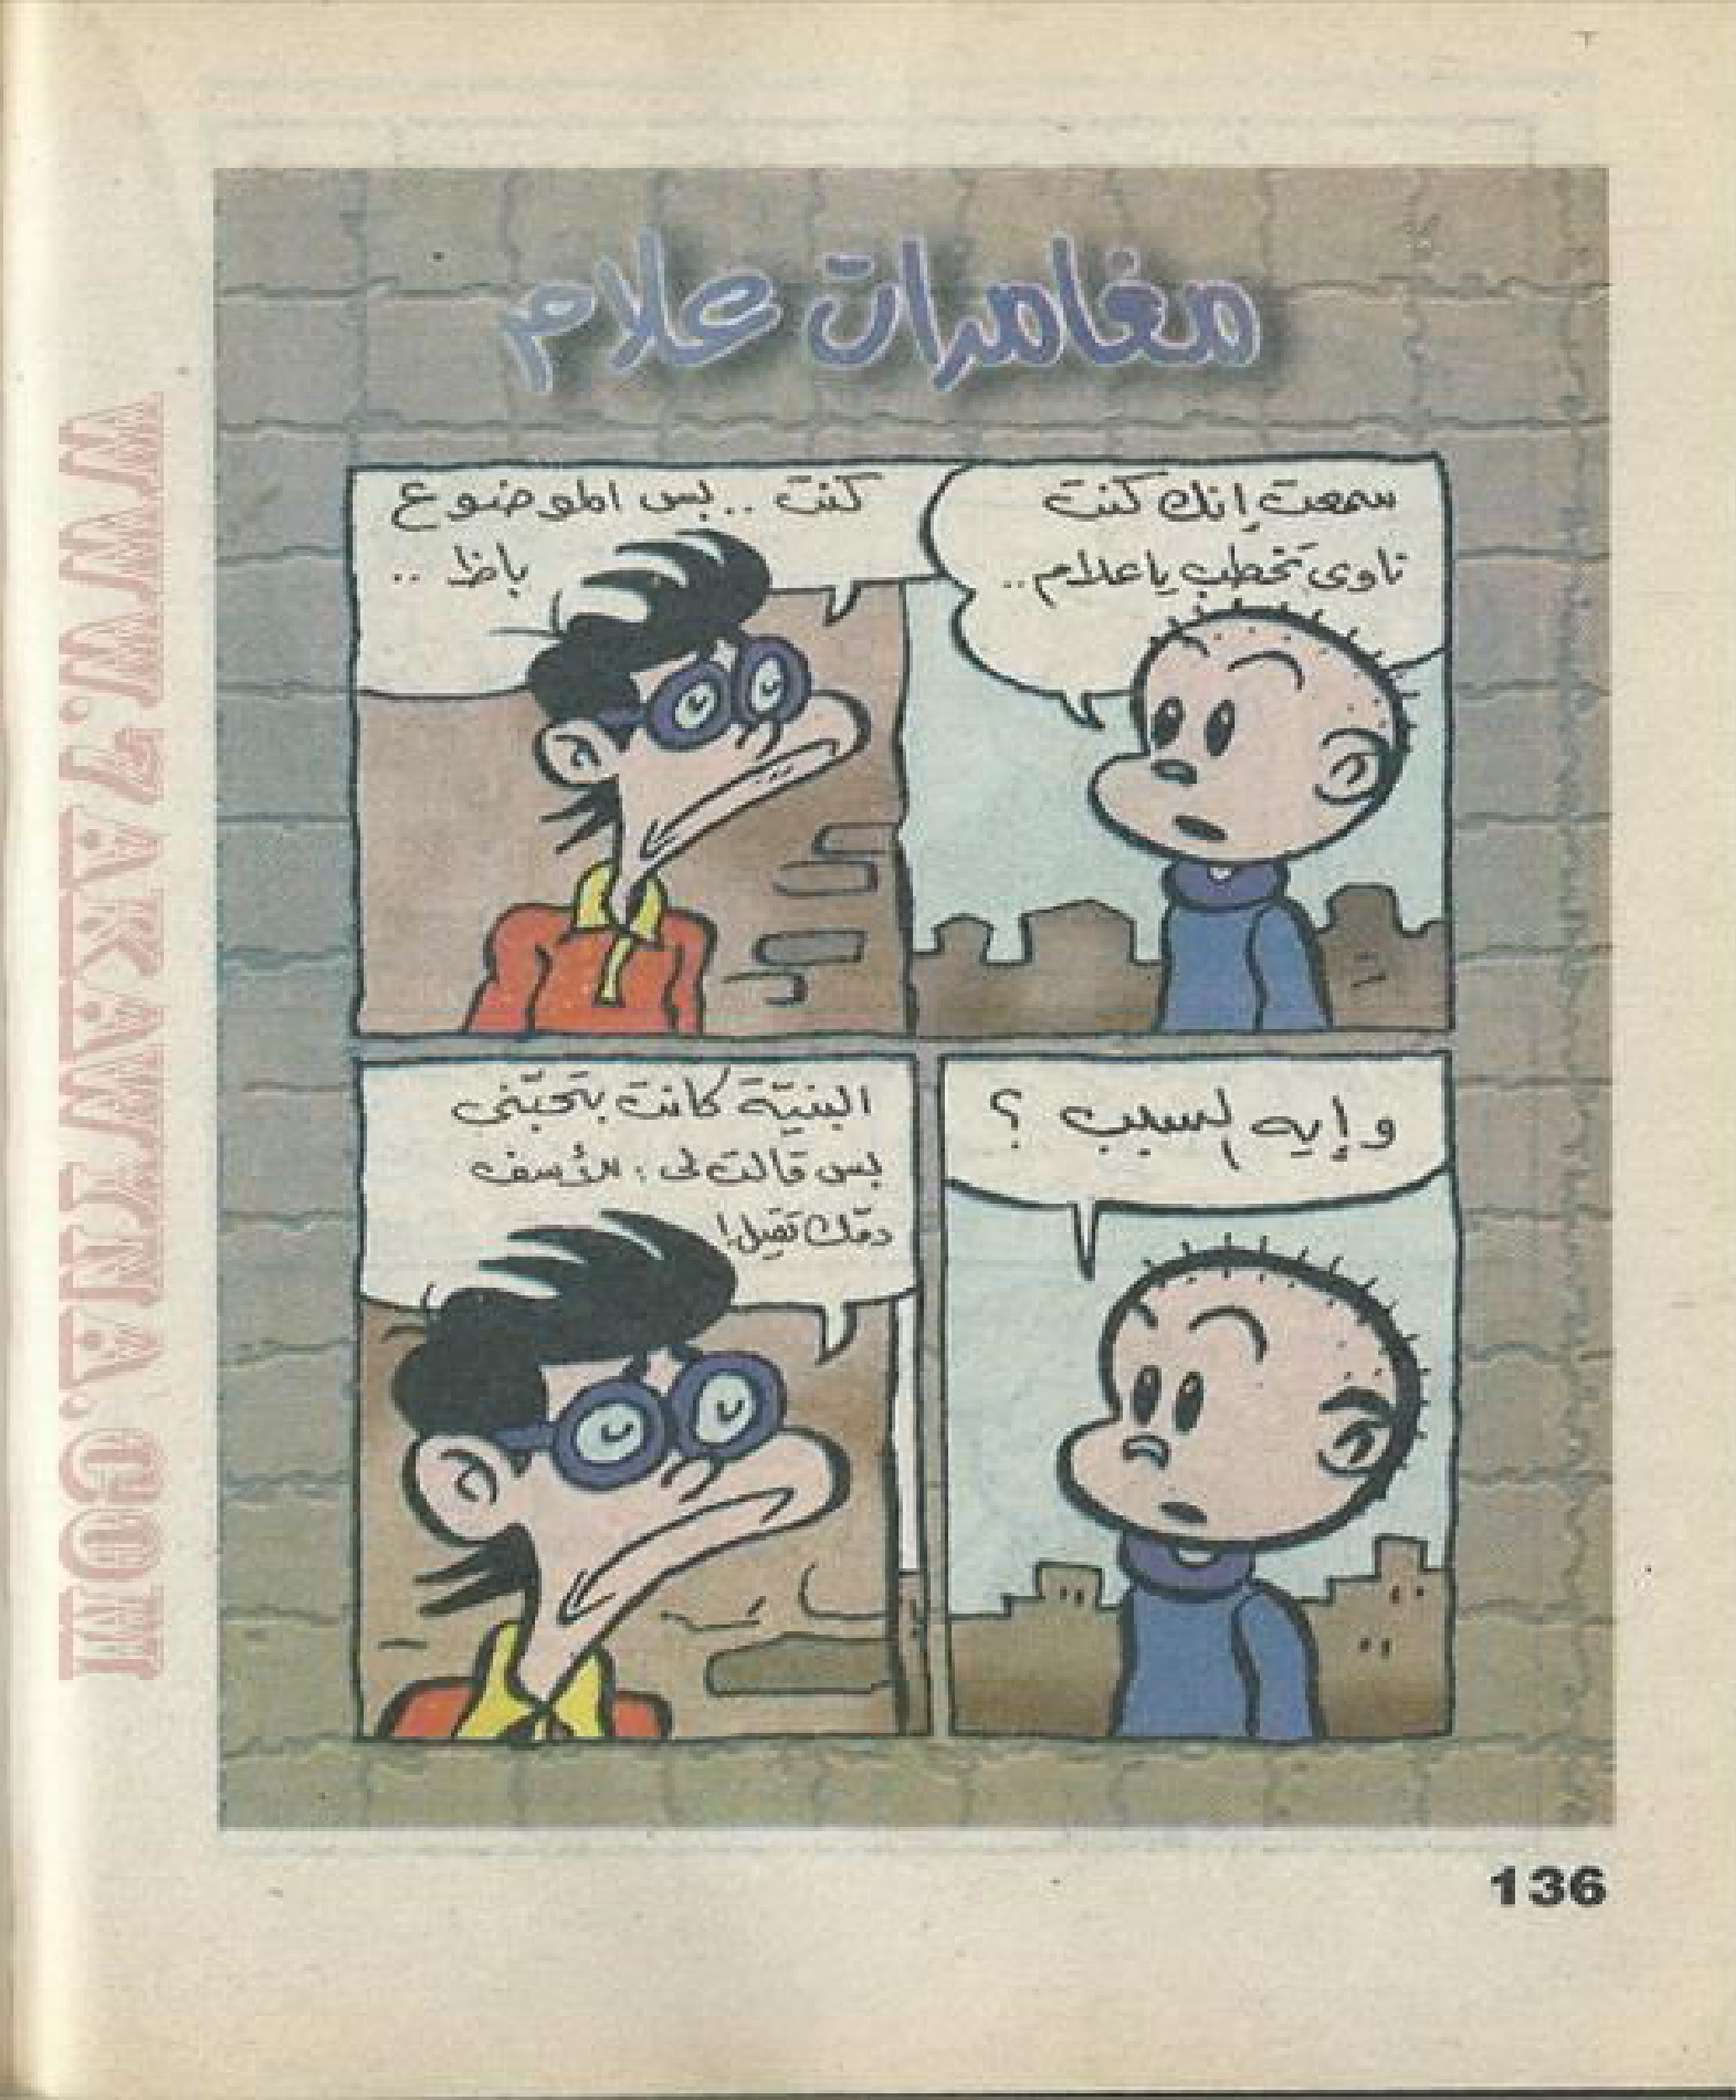 مغامرات علام
سمعت إنك كنت
ناوى تخطب يا علام..
كنت .. بس الموضوع
باظ ..
وإيه السبب ؟
البنيّة كانت بتحبّنى
بس قالت لى : للأسف
دمّك تقيل!
136
WWW.7AKAWINA.COM